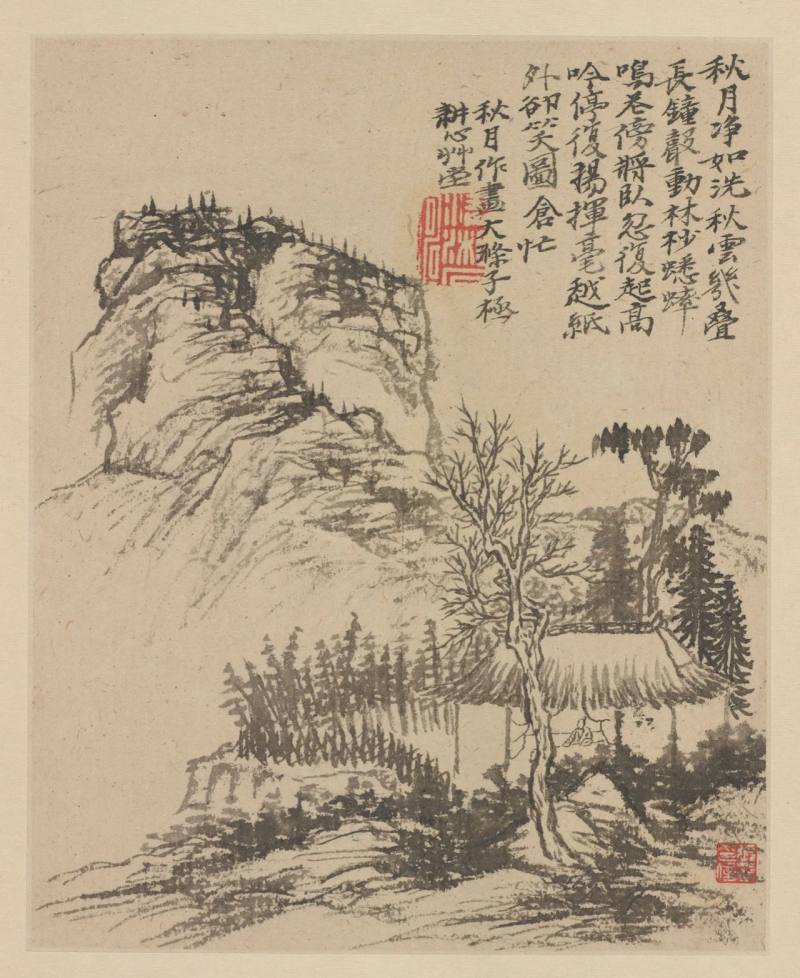 秋月净如洗秋雲幾疊
長鐘聲動林杪蟋蟀
鳴卷傍將臥忽復起高
吟停復揚揮毫越紙
外卻笑圖倉忙
秋月作畫 大滌子極
耕心艸堂